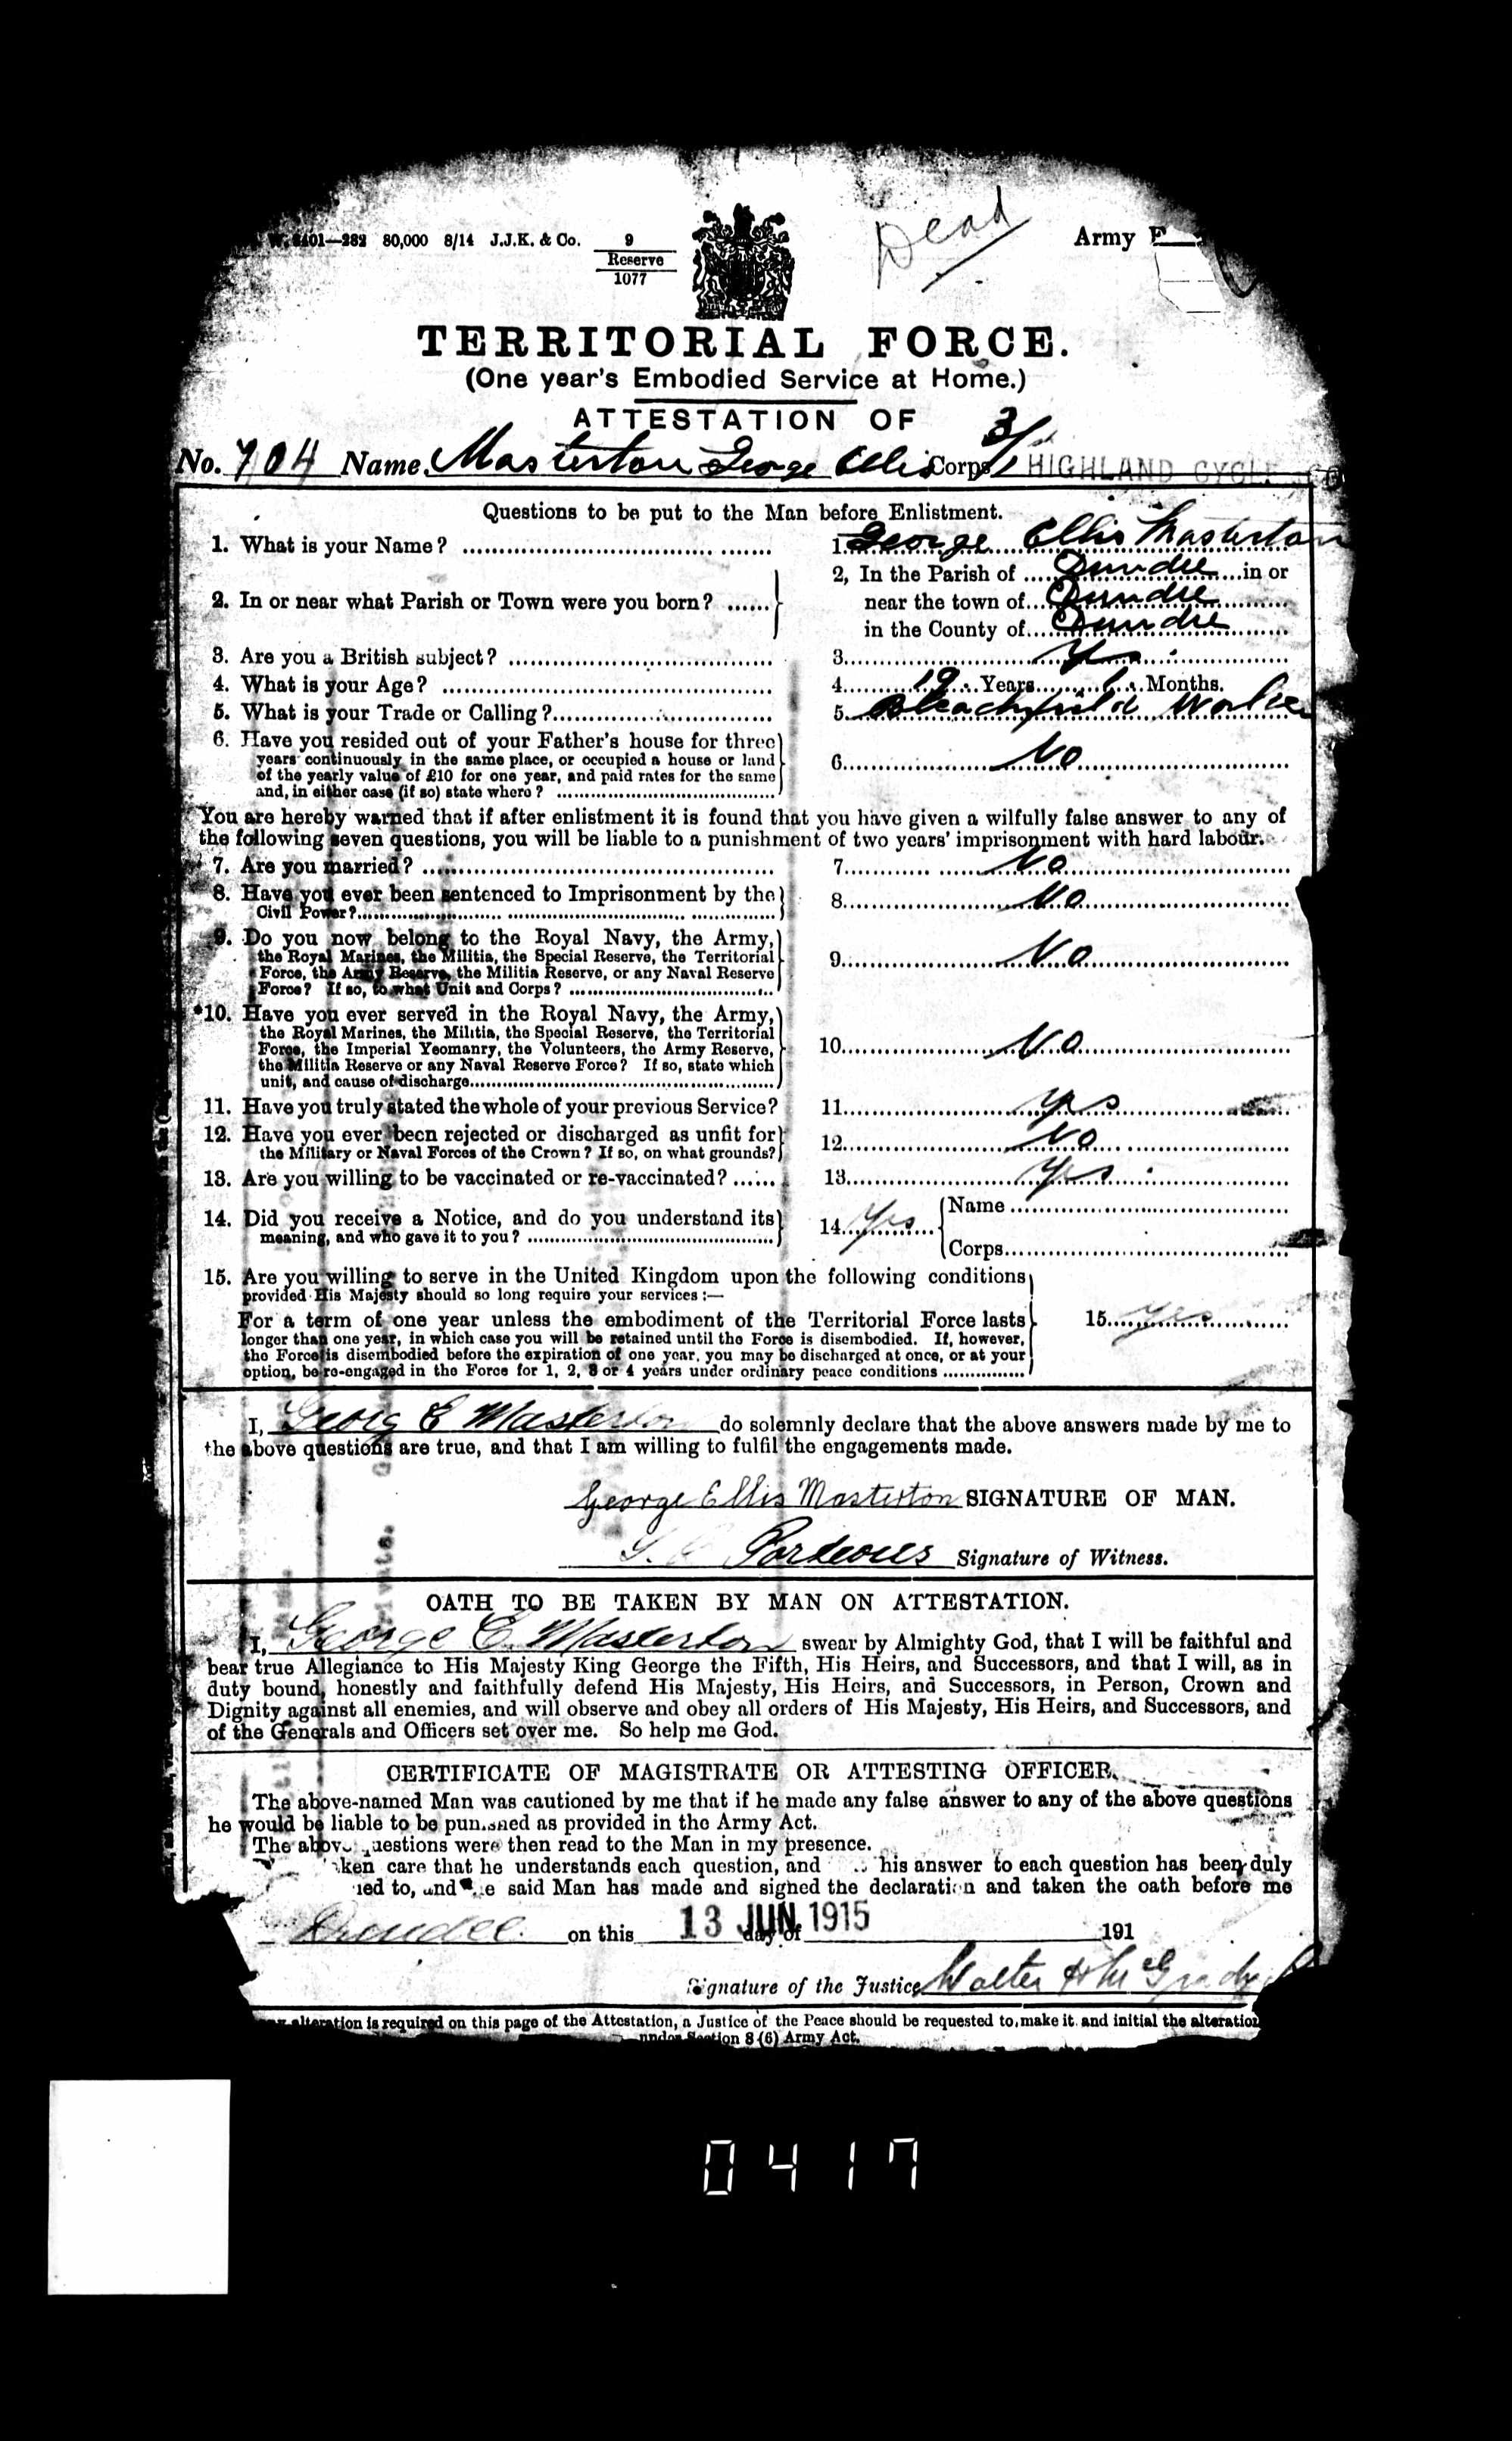 W. 8401—282 80,000 8/14 J.J.K. & Co. 9
Reserve
1077
Dead
Army F
TERRITORIAL FORCE.
(One year's Embodied Service at Home.)
ATTESTATION OF
No. 704 Name Masterton George Ellis Corps 3/1st HIGHLAND CYCLI
Questions to be put to the Man before Enlistment.
1. What is your Name? 1. George Ellis Masterton
2. In or near what Parish or Town were you born? 2, In the Parish of Dundee in or
near the town of Dundee
in the County of Dundee
3. Are you a British subject? 3. Yes
4. What is your Age? 4. 19 Years 1 Months.
5. What is your Trade or Calling? 5. Bleachfield Worker
6. Have you resided out of your Father's house for three
years continuously in the same place, or occupied a house or land
of the yearly value of £10 for one year, and paid rates for the same
and, in either case (if so) state where? 6. No
You are hereby warned that if after enlistment it is found that you have given a wilfully false answer to any of
the following seven questions, you will be liable to a punishment of two years' imprisonment with hard labour.
7. Are you married? 7. No
8. Have you ever been sentenced to Imprisonment by the
Civil Power? 8. No
9. Do you now belong to the Royal Navy, the Army,
the Royal Marines, the Militia, the Special Reserve, the Territorial
Force, the Army Reserve, the Militia Reserve, or any Naval Reserve
Force? If so, to what Unit and Corps? 9. No
*10. Have you ever served in the Royal Navy, the Army,
the Royal Marines, the Militia, the Special Reserve, the Territorial
Force, the Imperial Yeomanry, the Volunteers, the Army Reserve,
the Militia Reserve or any Naval Reserve Force? If so, state which
unit, and cause of discharge 10. No
11. Have you truly stated the whole of your previous Service? 11. Yes
12. Have you ever been rejected or discharged as unfit for
the Military or Naval Forces of the Crown? If so, on what grounds? 12. No
13. Are you willing to be vaccinated or re-vaccinated? 13. Yes
14. Did you receive a Notice, and do you understand its
meaning, and who gave it to you? 14. Yes Name
Corps
15. Are you willing to serve in the United Kingdom upon the following conditions
provided His Majesty should so long require your services:—
For a term of one year unless the embodiment of the Territorial Force lasts
longer than one year, in which case you will be retained until the Force is disembodied. If, however,
the Force is disembodied before the expiration of one year, you may be discharged at once, or at your
option, be re-engaged in the Force for 1, 2, 3 or 4 years under ordinary peace conditions 15. Yes
I, Georg E Masterton do solemnly declare that the above answers made by me to
the above questions are true, and that I am willing to fulfil the engagements made.
George Ellis Masterton SIGNATURE OF MAN.
Porteous Signature of Witness.
OATH TO BE TAKEN BY MAN ON ATTESTATION.
I, George E. Masterton swear by Almighty God, that I will be faithful and
bear true Allegiance to His Majesty King George the Fifth, His Heirs, and Successors, and that I will, as in
duty bound, honestly and faithfully defend His Majesty, His Heirs, and Successors, in Person, Crown and
Dignity against all enemies, and will observe and obey all orders of His Majesty, His Heirs, and Successors, and
of the Generals and Officers set over me. So help me God.
CERTIFICATE OF MAGISTRATE OR ATTESTING OFFICER.
The above-named Man was cautioned by me that if he made any false answer to any of the above questions
he would be liable to be punished as provided in the Army Act.
The above questions were then read to the Man in my presence.
ken care that he understands each question, and his answer to each question has been duly
ied to, and the said Man has made and signed the declaration and taken the oath before me
Dundee on this 13 JUN 1915 day of 191
Signature of the Justice Walter McGrady
alteration is required on this page of the Attestation, a Justice of the Peace should be requested to make it and initial the alteration
under Section 8 (6) Army Act.
0417